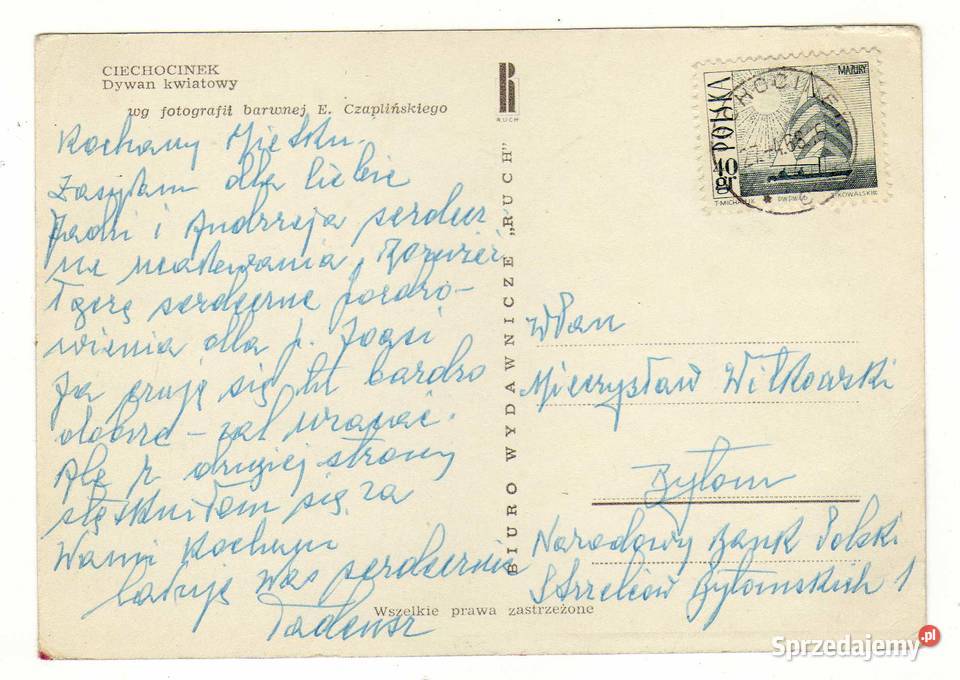 CIECHOCINEK
Dywan kwiatowy
wg fotografii barwnej E. Czaplińskiego
Kochany Mietku.
Zasyłam dla Ciebie
Jadzi i Andrzeja serdecz
ne ucałowania,
Łączę serdeczne pozdro-
wienia dla p. Zosi
Ja czuję się tu bardzo
dobrze – żal wracać.
Ale z drugiej strony
stęskniłam się za
Wami Kochani
Całuję Was serdecznie
Tadeusz
Wszelkie prawa zastrzeżone
R
RUCH
BIURO WYDAWNICZE „RUCH”
POLSKA
40 gr
MAZURY
T. MICHALUK
PWPW
KOWALSKI
WPan
Mieczysław Witkowski
Bytom
Narodowy Bank Polski
Strzelców Bytomskich 1
Sprzedajemy.pl